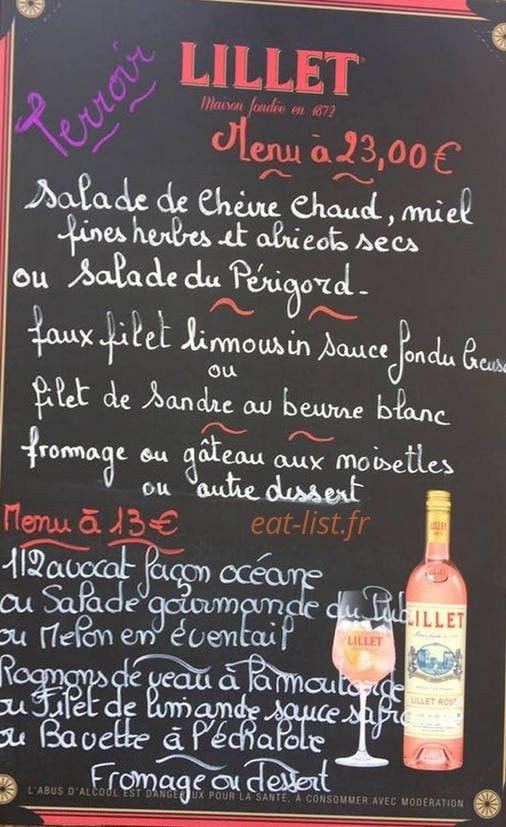 Terroir
LILLET
Maison fondée en 1872
Menu à 23,00€
Salade de Chèvre Chaud, miel
fines herbes et abricots secs
ou Salade du Périgord-
faux filet limousin sauce fondu Creuse
ou
filet de Sandre au beurre blanc
fromage ou gâteau aux noisettes
ou autre dessert
Menu à 13€
eat-list.fr
1/2 avocat façon océane
ou Salade gourmande du Pub
ou Melon en éventail
Rognons de veau à l'a moutarde
ou Filet de limande sauce safranée
ou Bavette à l'échalote
Fromage ou dessert
LILLET
LILLET
LILLET
LILLET ROSÉ
L'ABUS D'ALCOOL EST DANGEREUX POUR LA SANTÉ, À CONSOMMER AVEC MODÉRATION